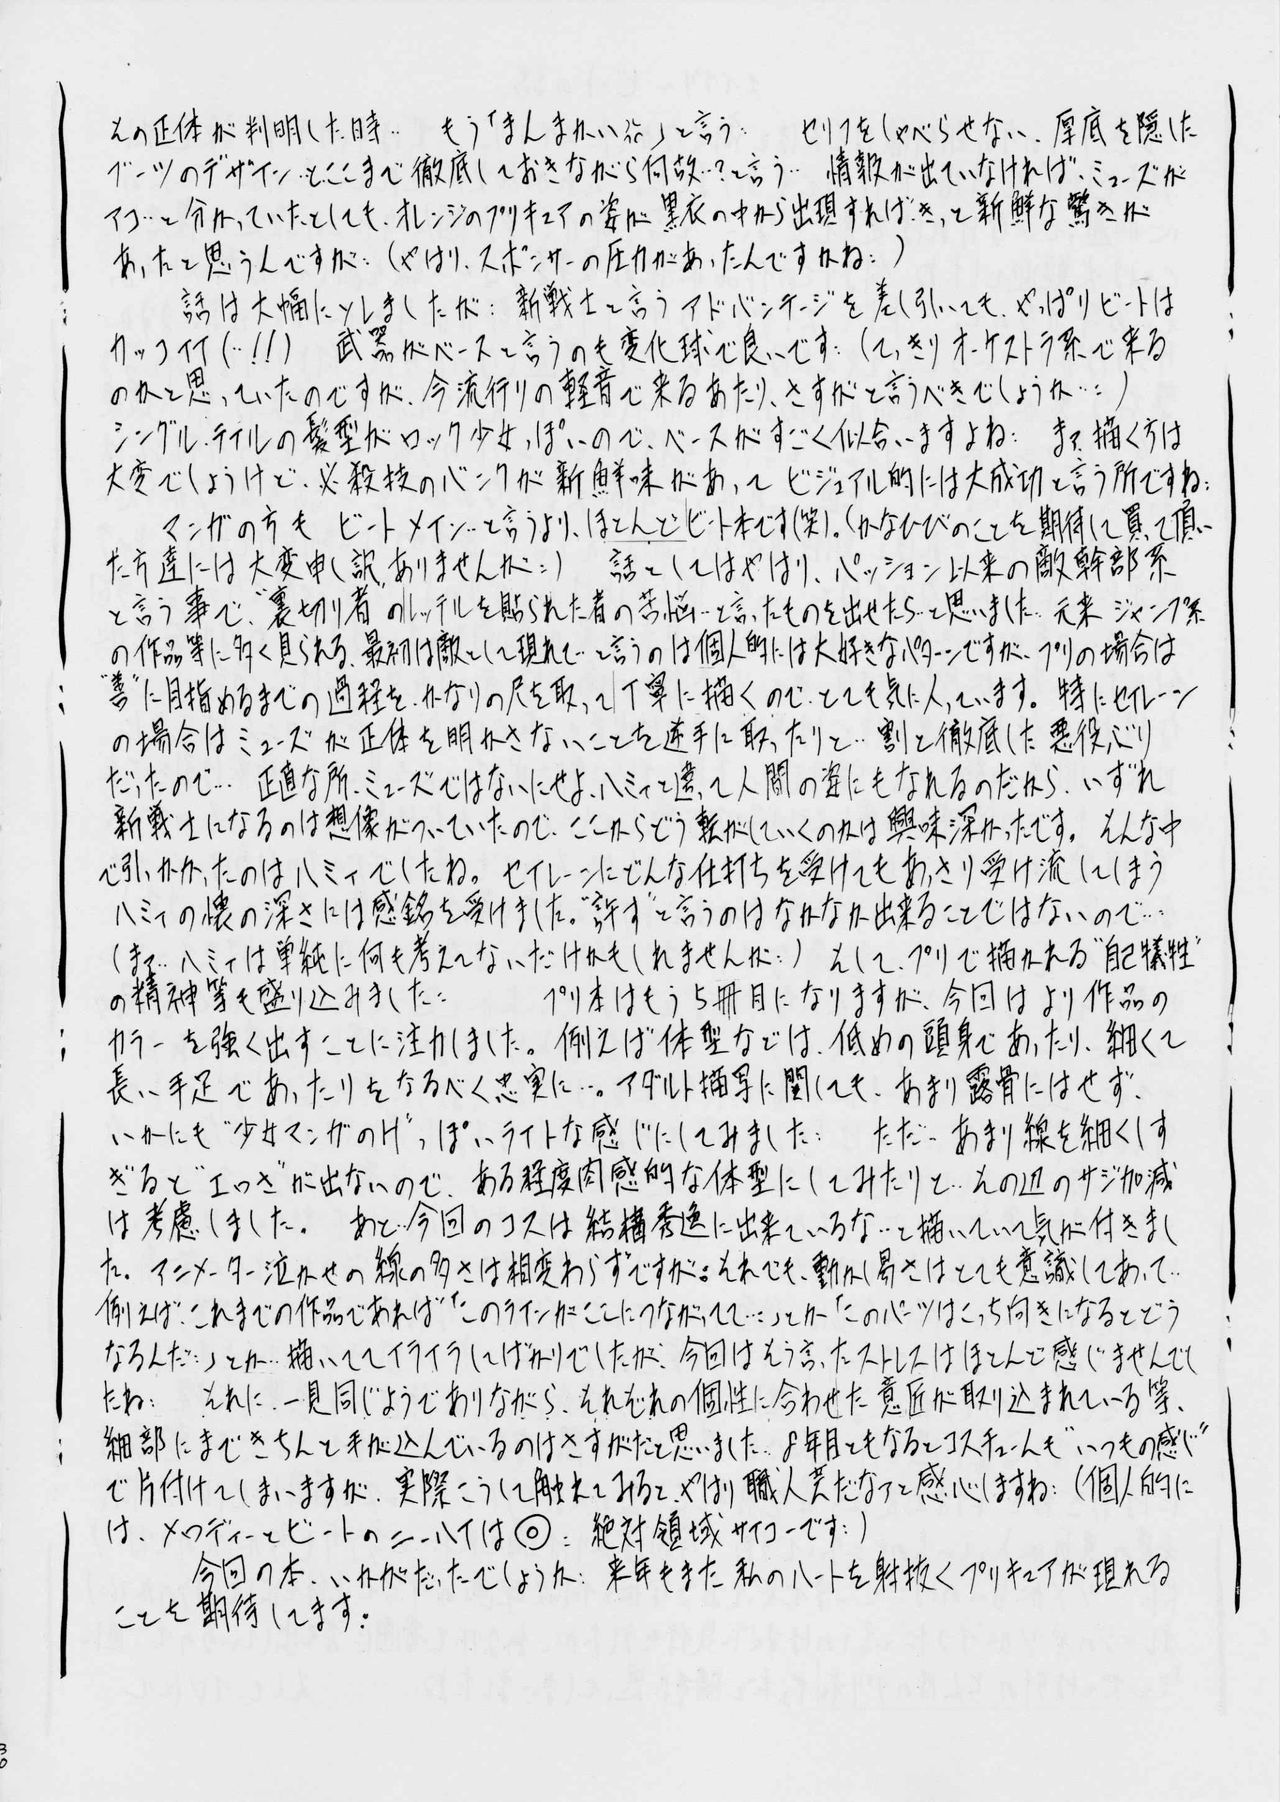 その正体が判明した時‥ もう「まんまかい‼」と言う‥ セリフをしゃべらせない、厚底を隠した
ブーツのデザイン‥とここまで徹底しておきながら何故‥?と言う‥ 情報が出ていなければ、ミューズが
アコ‥と分かっていたとしても、オレンジのプリキュアの姿が黒衣の中から出現すれば、きっと新鮮な驚きが
あったと思うんですが‥(やはり、スポンサーの圧力があったんですかね‥)
話は大幅にソレましたが‥新戦士と言うアドバンテージを差し引いても、やっぱりビートは
カッコイイ(‥!!) 武器がベースと言うのも変化球で良いです‥(てっきりオーケストラ系で来る
のかと思っていたのですが、今流行りの軽音で来るあたり、さすがと言うべきでしょうか‥‥)
シングルテイルの髪型がロック少女っぽいので、ベースがすごく似合いますよね‥ まァ、描く方は
大変でしょうけど‥必殺技のバンクが新鮮味があって ビジュアル的には大成功と言う所ですね‥
マンガの方も ビートメイン‥と言うより、ほとんどビート本です(笑)。(かなひびのことを期待して買って頂い
た方達には大変申し訳ありませんが‥) 話としてはやはり、パッション以来の敵幹部系
と言う事で、“裏切り者”のレッテルを貼られた者の苦悩‥と言ったものを出せたら‥と思いました‥ 元来ジャンプ系
の作品等に多く見られる、最初は敵として現れて‥と言うのは個人的には大好きなパターンですが、プリの場合は
“善”に目指めるまでの過程を、かなりの尺を取って丁寧に描くので、とても気に入っています。特にセイレーン
の場合はミューズが正体を明かさないことを逆手に取ったりと‥ 割と徹底した悪役ぶり
だったので‥ 正直な所、ミューズではないにせよ、ハミィと違って人間の姿にもなれるのだから、いずれ
新戦士になるのは想像がついていたので、ここからどう転がしていくのかは興味深かったです。そんな中
で引っかかったのはハミィでしたね。セイレーンにどんな仕打ちを受けてもあっさり受け流してしまう
ハミィの懐の深さには感銘を受けました。“許す”と言うのはなかなか出来ることではないので‥‥
(まァ‥ハミィは単純に何も考えてないだけかもしれませんが‥) そして、プリで描かれる“自己犠牲”
の精神等も盛り込みました‥ プリ本はもう5冊目になりますが、今回はより作品の
カラーを強く出すことに注力しました。例えば体型などは、低めの頭身であったり、細くて
長い手足であったりをなるべく忠実に‥。アダルト描写に関しても、あまり露骨にはせず、
いかにも“少女マンガのH”っぽいライトな感じにしてみました‥ ただ‥あまり線を細くしす
ぎると“エロさ”が出ないので、ある程度肉感的な体型にしてみたりと‥その辺のサジ加減
は考慮しました。 あと‥今回のコスは結構秀逸に出来ているな‥と描いていて気が付きまし
た。アニメーター泣かせの線の多さは相変わらずですが‥それでも、動かし易さはとても意識してあって‥
例えば、これまでの作品であれば「このラインがここにつながってて‥‥」とか「このパーツはこっち向きになるとどう
なるんだ‥」とか‥描いててイライラしてばかりでしたが、今回はそう言ったストレスはほとんど感じませんでし
たね‥ それに、一見同じようでありながら、それぞれの個性に合わせた意匠が取り込まれている等、
細部にまできちんと手が込んでいるのはさすがだと思いました‥8年目ともなるとコスチュームも“いつもの感じ”
で片付けてしまいますが、実際こうして触れてみると、やはり職人芸だなァと感心しますね‥(個人的に
は、メロディーとビートのニーハイは◎‥絶対領域サイコーです‥)
今回の本、いかがだったでしょうか‥来年もまた私のハートを射抜くプリキュアが現れる
ことを期待してます。
30